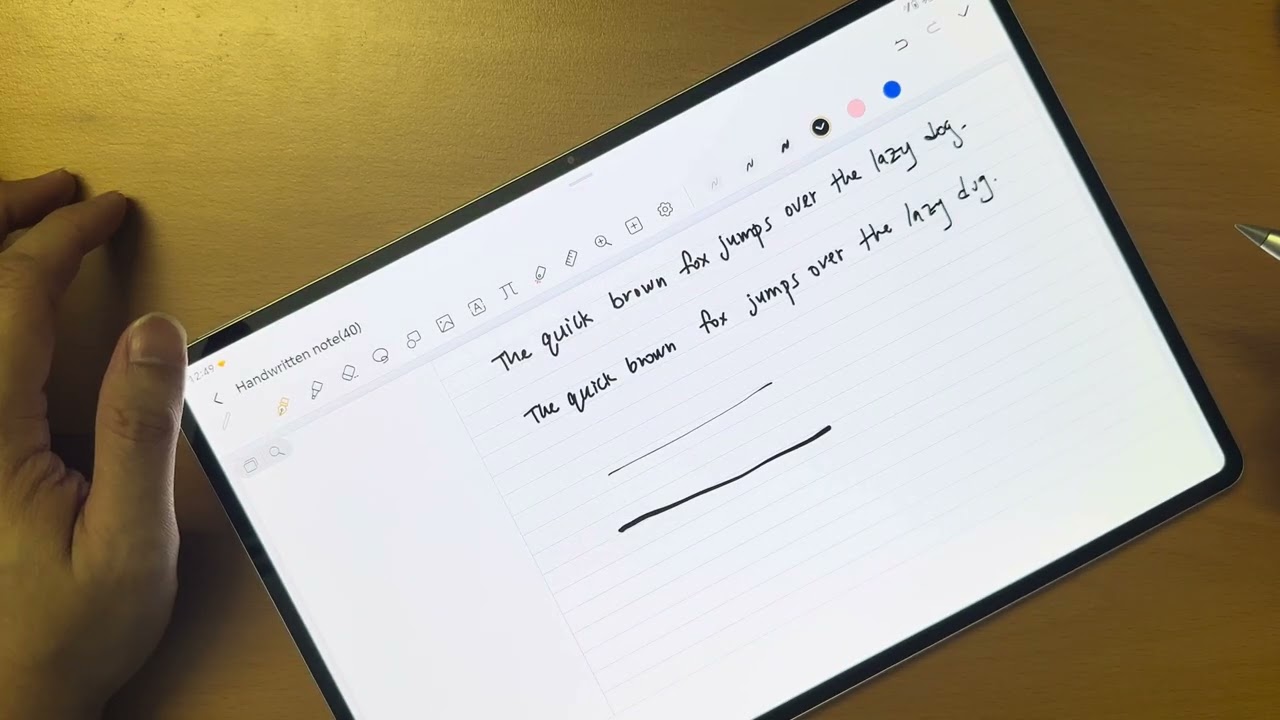 12:49
Handwritten note(40)
A
The quick brown fox jumps over the lazy dog.
The quick brown fox jumps over the lazy dog.